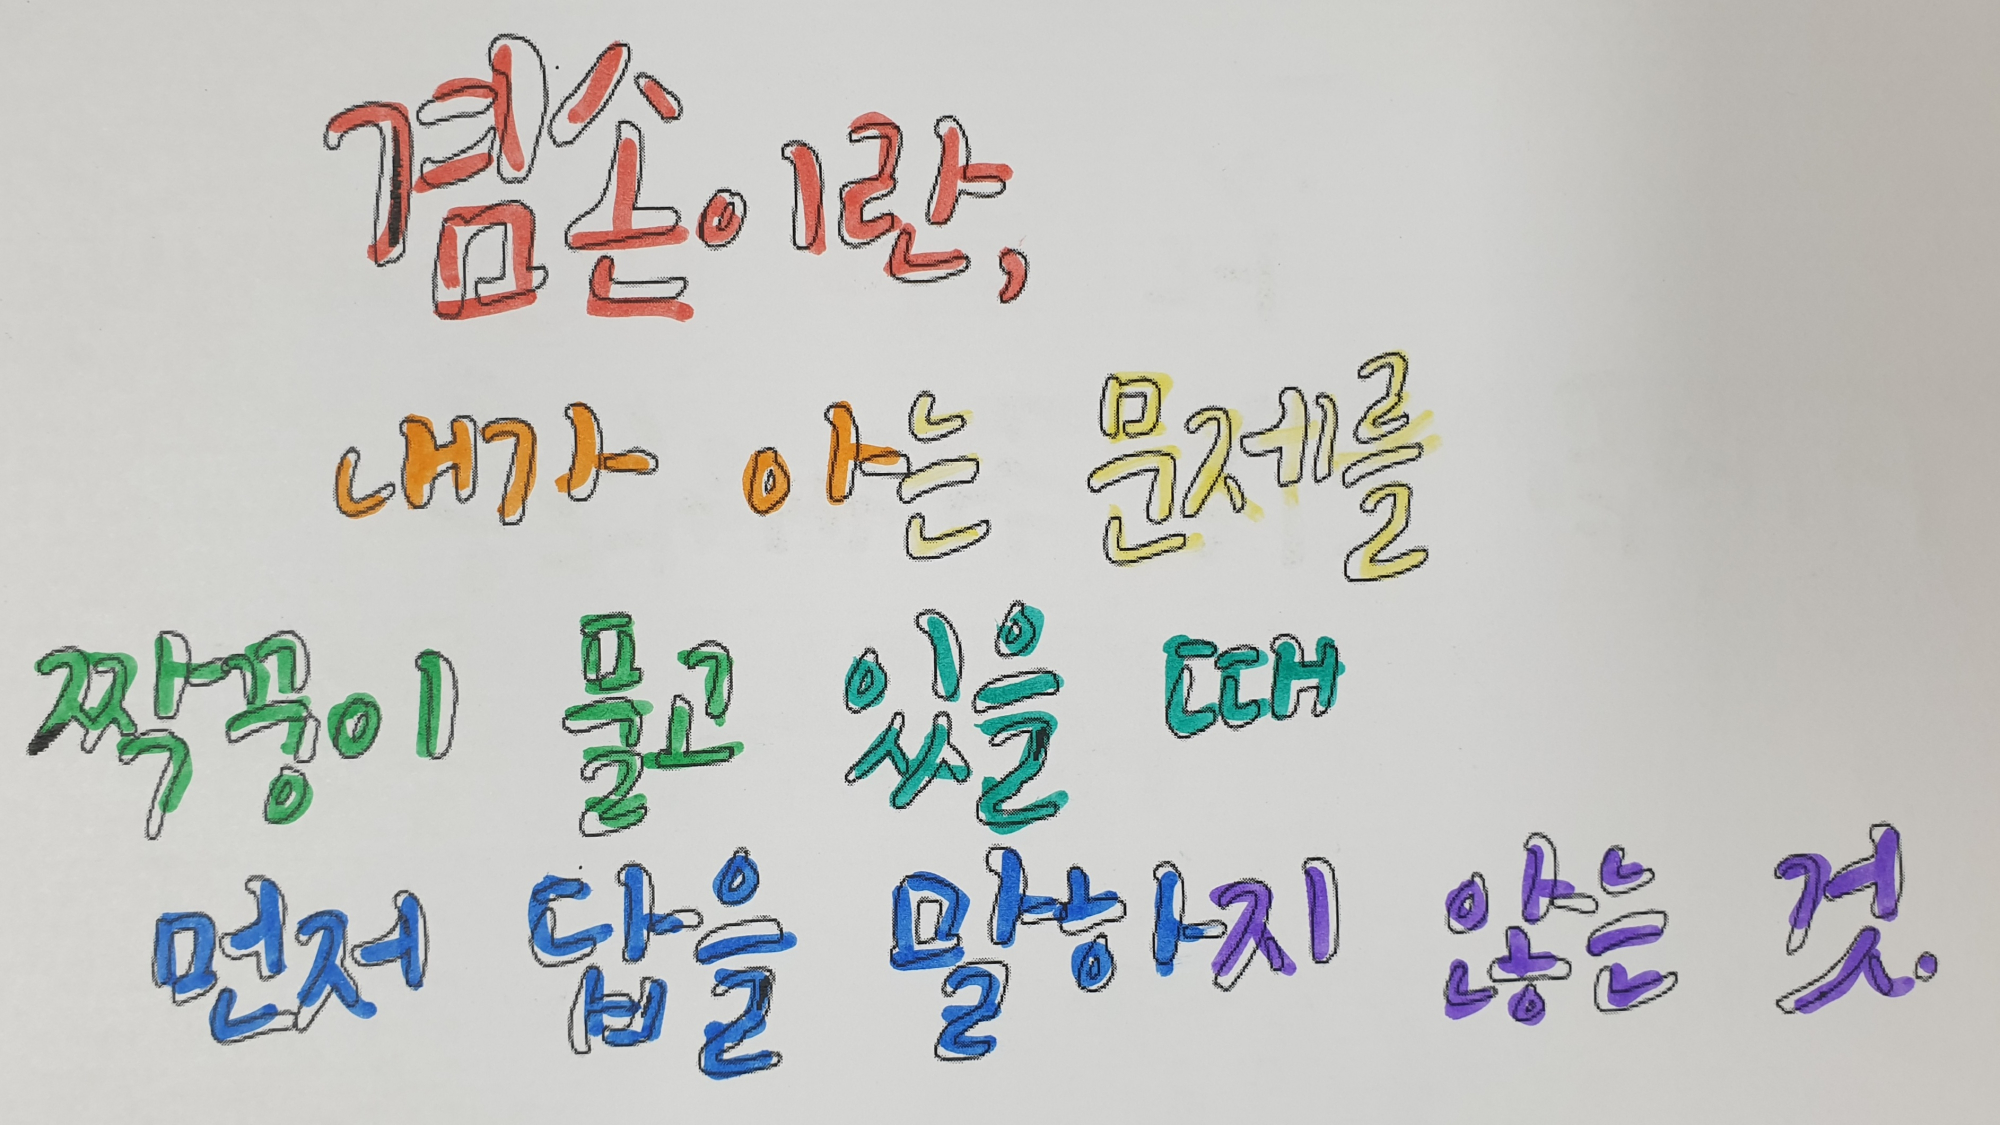 겸손이란,
내가 아는 문제를
짝꿍이 물고 있을 때
먼저 답을 말하지 않는 것.